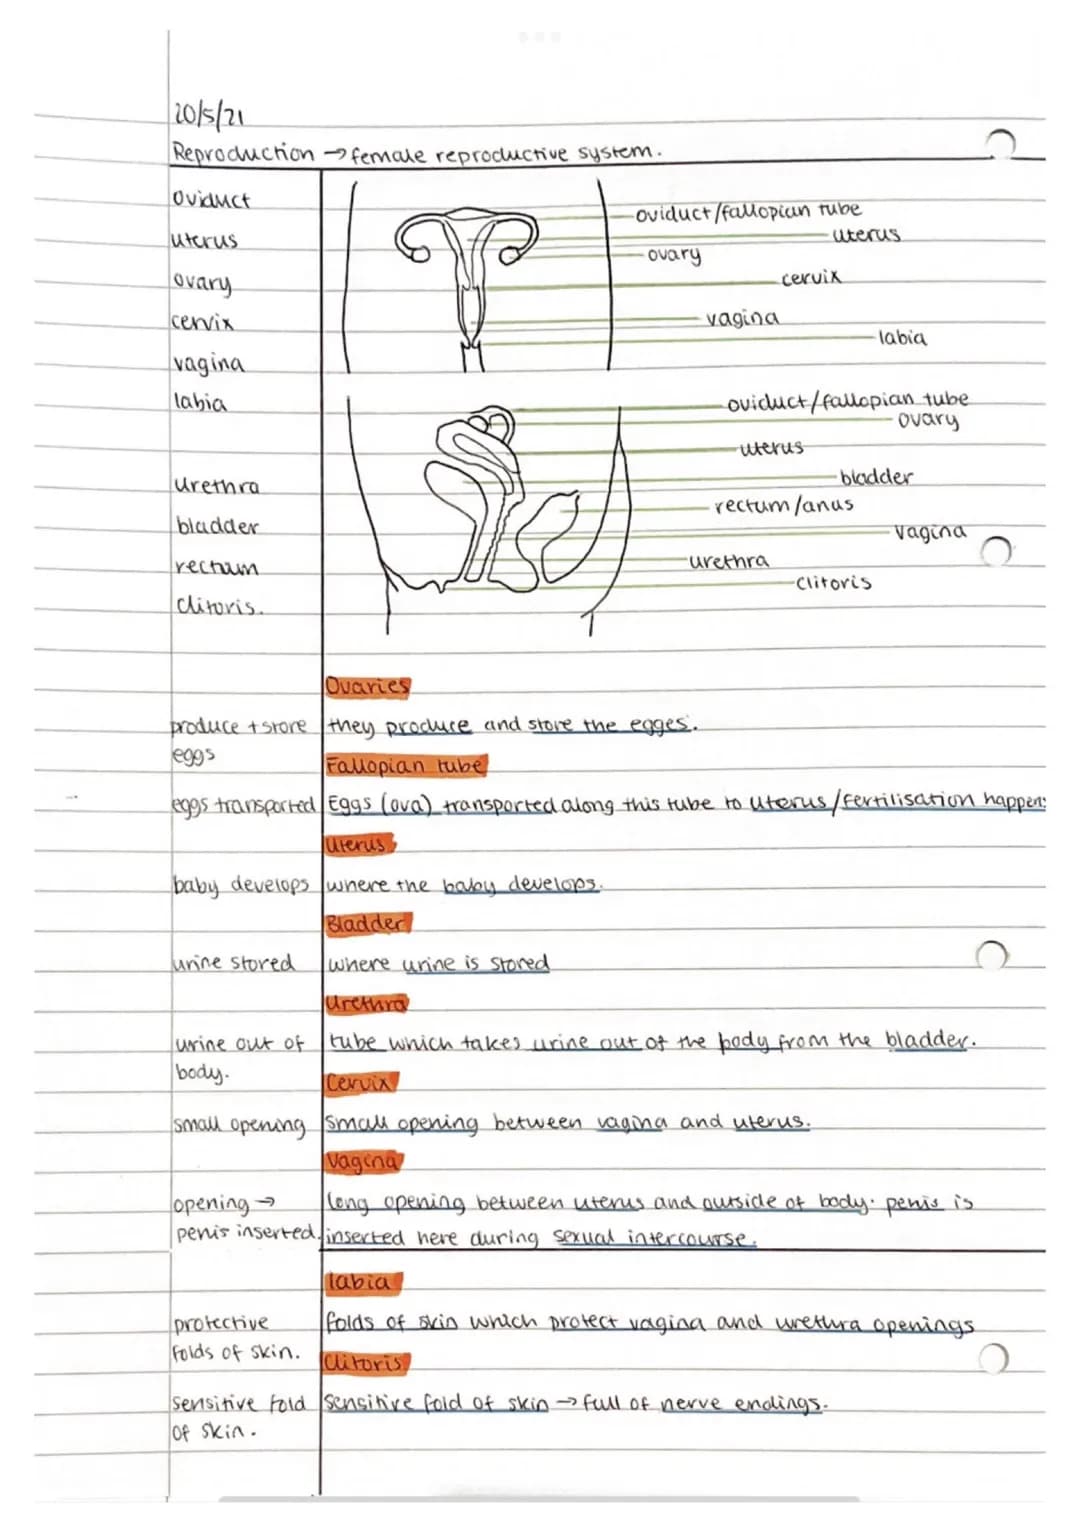 20/5/21
Reproduction → female reproductive system.
oviduct
uterus
ovary
cervix
vagina
labia
urethra
bladder
rectum
clitoris.
oviduct/fallopian tube
uterus
ovary
cervix
vagina
labia
oviduct/fallopian tube
ovary
uterus
bladder
rectum/anus
vagina
urethra
clitoris
Ovaries
produce + store they produce and store the egges.
eggs
Fallopian tube
eggs transported Eggs (ova) transported along this tube to uterus/fertilisation happens
Uterus
baby develops where the baby develops.
Bladder
urine stored where urine is stored
Urethra
urine out of tube which takes urine out of the body from the bladder.
body.
Cervix
small opening small opening between vagina and uterus.
Vagina
opening → long opening between uterus and outside of body. penis is
penis inserted. inserted here during sexual intercourse.
labia
protective folds of skin which protect vagina and urethra openings
folds of skin.
Clitoris
sensitive fold sensitive fold of skin → full of nerve endings.
of skin.